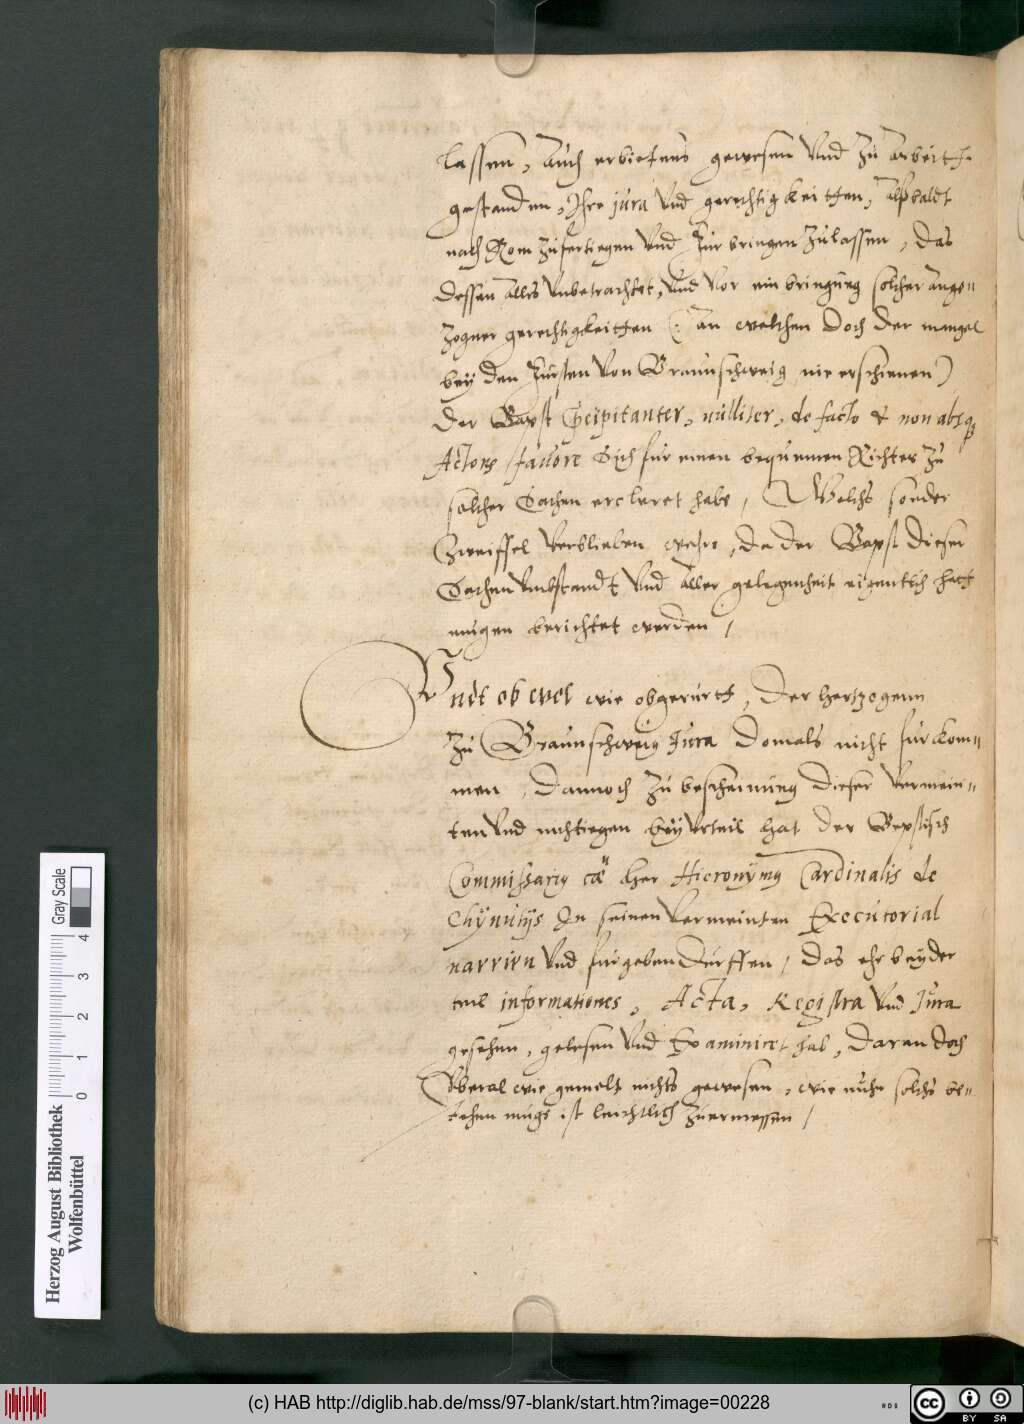 lassen, Auch erbietens gewesen Vnd Zu Arbeitt
gestanden, Ihre jura Vnd gerechtigkeitten, Alßbaldt
nach Rom Zufertiegen Vnd Fürbringen Zulassen, Das
dessen Alles Vnbetrachtet, Vnd Vor einbringung solcher Ange¬
Zogner gerechtigkeitten (: An welchen Doch der mangel
bey den Fursten Von Braunschweig nie erschienen)
Der Bapst Precipitanter, nulliter, de facto & non absq
Actoris fauore Sich für einen bequemen Richter Zu
solcher Sachen ercleret habe, Welchs sonder
Zweiffel Verblieben wehre, da der Bapst dieser
Sachen Vmbstandt Vnd Aller gelegenheit eigentlich hett
mugen berichtet werden,
Vndt ob wol wie obgerurtt, Der hertzogenn
Zu Braunschweig Jura Domals nicht furkom¬
men, Dannoch Zu bescheinung dieser Vermein¬
ten Vnd nichtiegen beyVrteil hat der Bepstisch
Commissarius her Hieronymus Cardinalis de
Ghynutijs In seinen Vermeinten Executorial
narrirn Vnd furgeben Dürffen, Das ehr beyder
teil informationes, Acta, Registra Vnd Jura
gesehen, gelesen Vnd Examiniret hab, Daran doch
Vberal wie gemelt nichts gewesen, wie nuhn solchs be¬
stehen muge ist leichtlich Zuermessen,
Herzog August Bibliothek
Wolfenbüttel
Gray Scale
0 1 2 3 4
(c) HAB http://diglib.hab.de/mss/97-blank/start.htm?image=00228
cc BY SA